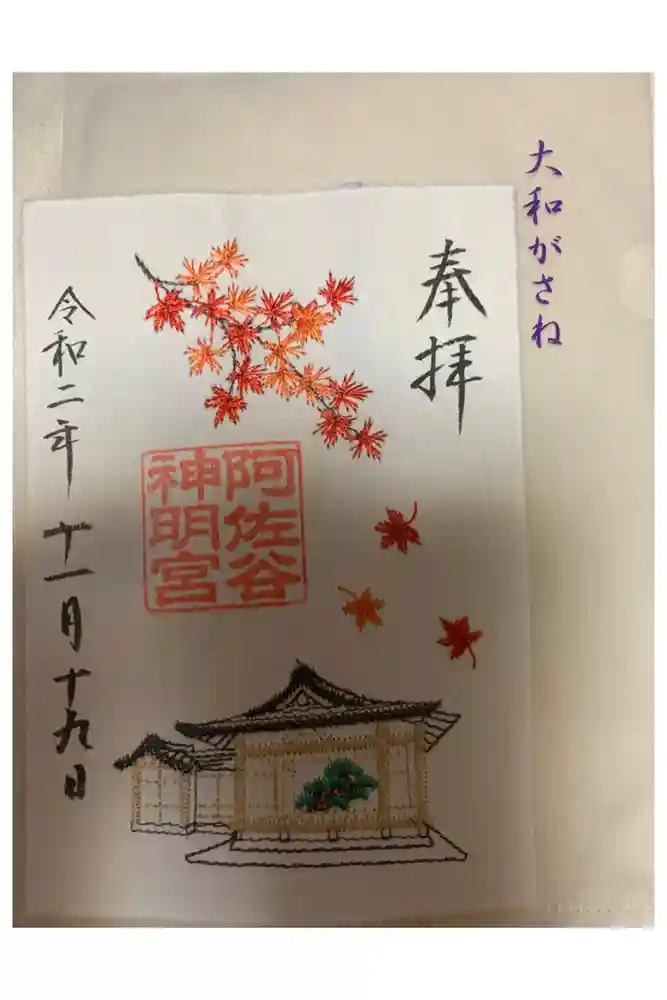 大和がさね
奉拝
阿佐谷
神明宮
令和二年十一月十九日